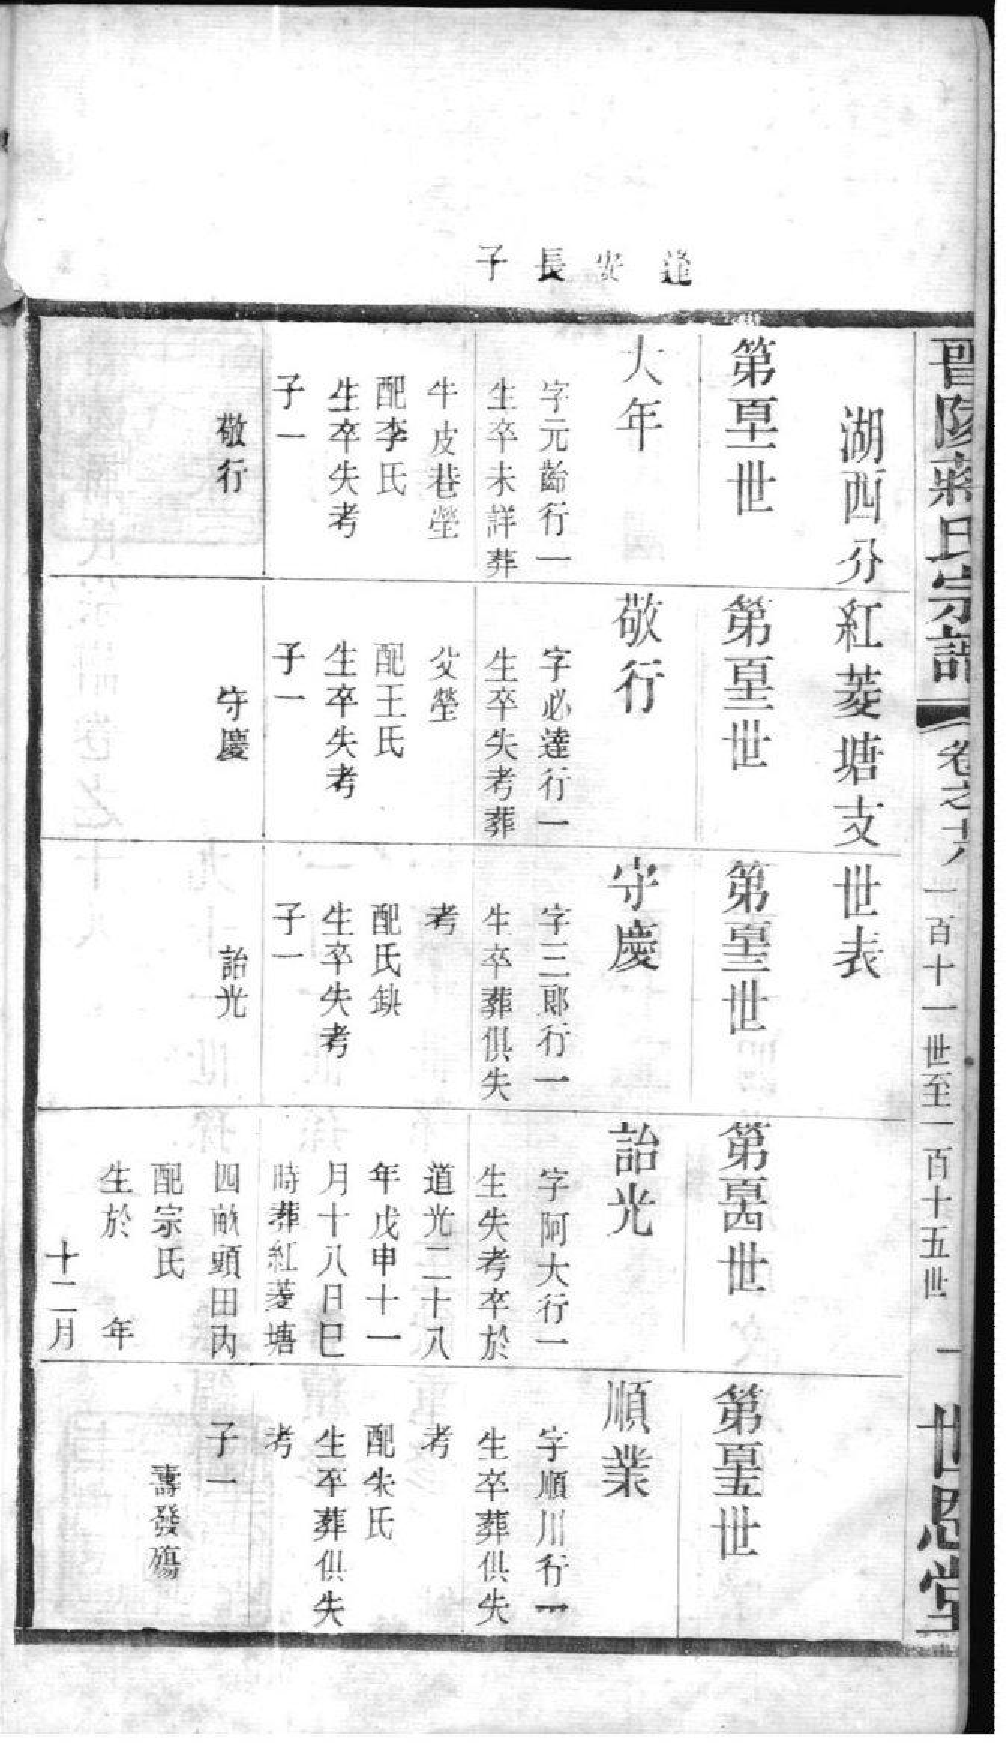 晋陵蔣氏宗譜
卷之十八
一百十一世至一百十五世
一
世恩堂
湖西分紅菱塘支世表
逢安長子
第百十一世
大年
字元齡行一
生卒未詳葬
牛皮巷塋
配李氏
生卒失考
子一
敬行
第百十二世
敬行
字必達行一
生卒失考葬
父塋
配王氏
生卒失考
子一
守慶
第百十三世
守慶
字三郎行一
生卒葬俱失
考
配氏缺
生卒失考
子一
詒光
第百十四世
詒光
字阿大行一
生失考卒於
道光二十八
年戊申十一
月十八日巳
時葬紅菱塘
四畝頭田內
配宗氏
生於 年
十二月
第百十五世
順業
字順川行一
生卒葬俱失
考
配朱氏
生卒葬俱失
考
子一
壽發殤